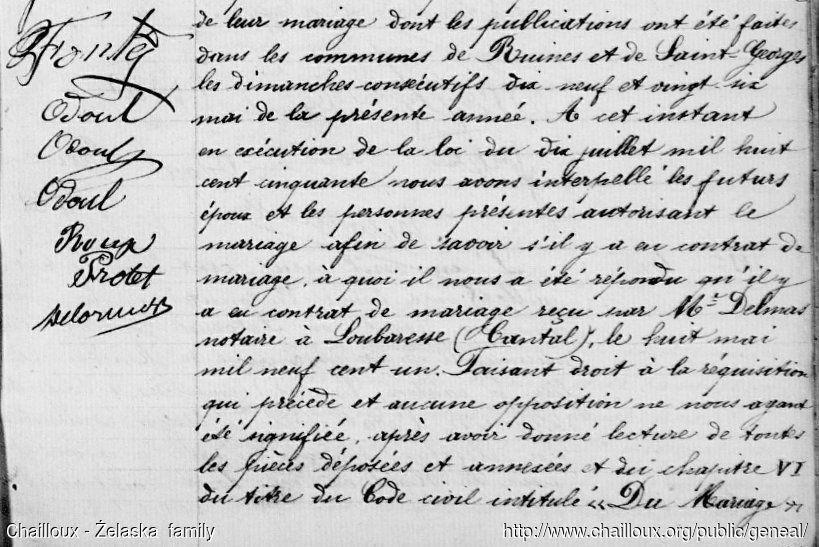 Odoul
Odoul
Odoul
Roux
Protet
de leur mariage dont les publications ont été faites
dans les communes de Ruines et de Saint-Georges
les dimanches consécutifs dix neuf et vingt six
mai de la présente année. A cet instant
en exécution de la loi du dix juillet mil huit
cent cinquante nous avons interpellé les futurs
époux et les personnes présentes autorisant le
mariage afin de savoir s'il y a eu contrat de
mariage, à quoi il nous a été répondu qu'il y
a eu contrat de mariage reçu par Me Delmas
notaire à Loubaresse (Cantal), le huit mai
mil neuf cent un. Faisant droit à la réquisition
qui précède et aucune opposition ne nous ayant
été signifiée, après avoir donné lecture de toutes
les pièces déposées et annexées et du chapitre VI
du titre du Code civil intitulé « Du Mariage »
Chailloux - Żelaska family
http://www.chailloux.org/public/geneal/